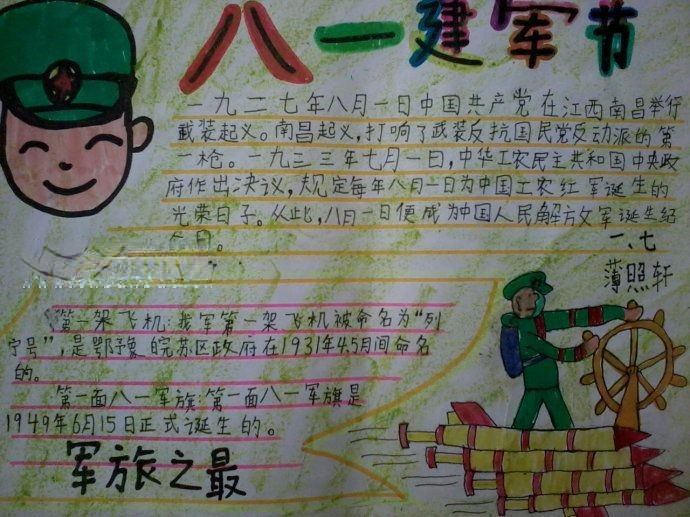 八一建军节
一九二七年八月一日中国共产党在江西南昌举行
载装起义。南昌起义,打响了武装反抗国民党反动派的第
一枪。一九三三年七月一日,中华工农民主共和国中央政
府作出决议,规定每年八月一日为中国工农红军诞生的
光荣日子。从此,八月一日便成为中国人民解放军诞生纪
念日。
一、七
薄照轩
第一架飞机:我军第一架飞机被命名为“列
宁号”,是鄂豫皖苏区政府在1931年4.5月间命名
的。
第一面八一军旗:第一面八一军旗是
1949年6月15日正式诞生的。
军旅之最